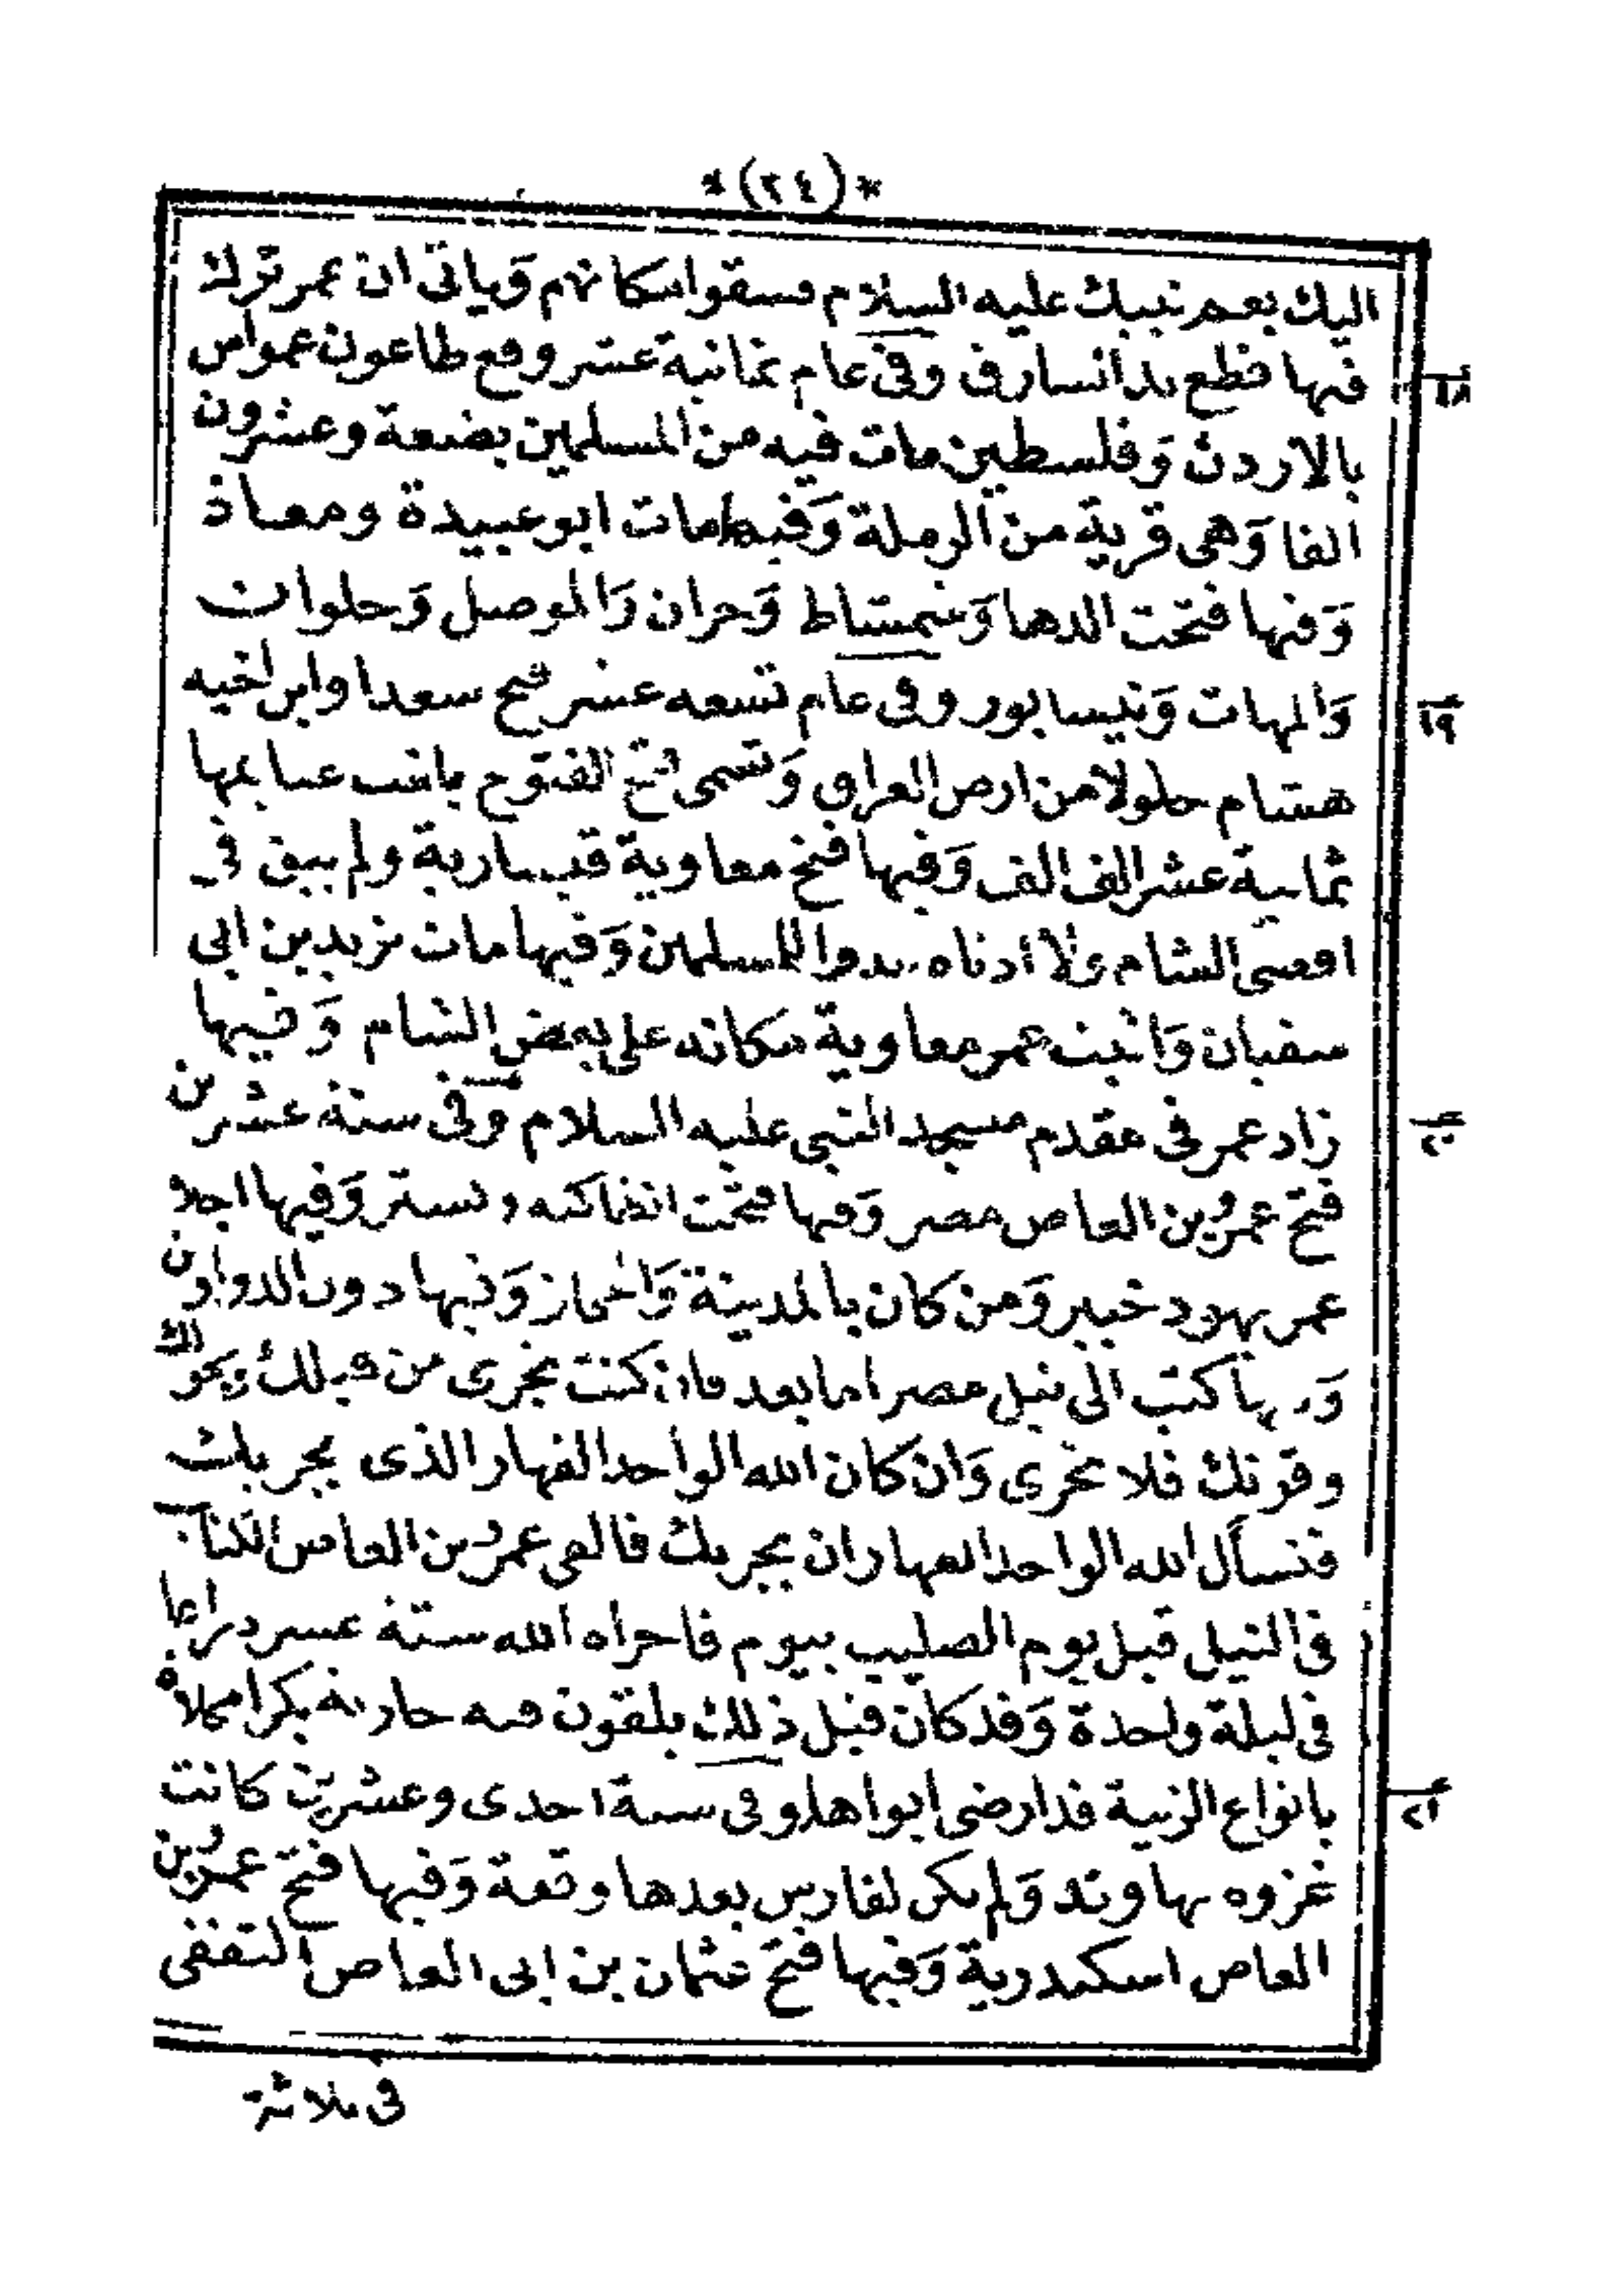 *(٢٤)*
اليك بعم نبيك عليه السلام فسقوا مكانهم وَياتى ان عمر ترك
فيها قطع يد السارق وفى عام ثمانية عشر وقع طاعون عمواس
١٨
بالاردن وَفلسطين مات فيه من المسلمين بضعة وعشرون
الفا وَهى قرية من الرملة وَفيها مات ابو عبيدة ومعاذ
وَفيها فتحت الرها وَسميساط وَحران وَالموصل وَحلوان
وَالمهات وَنيسابور وفى عام تسعه عشر فتح سعد وابن اخيه
١٩
هشام جلولا من ارض العراق وَتسمى فتح الفتوح بلغت غنايمها
ثمانية عشر الف الف وَفيها فتح معاوية قيسارية ولم يبق فى
اقصى الشام ولا ادناه عدوا للمسلمين وَفيها مات يزيد بن ابى
سفيان وَاثبت عمر معاوية مكانه على بعض الشام وَفيها
زاد عمر فى مقدم مسجد النبى عليه السلام وفى سنة عشرين
٢٠
فتح عمرو بن العاص مصر وَفيها فتحت انطاكيه و تستر وَفيها اجلا
عمر يهود خيبر وَمن كان بالمدينة وَالحجاز وَفيها دون الدواوين
وَفيها كتب الى نيل مصر اما بعد فان كنت تجرى من قبلك وبحولك
وقوتك فلا تجرى وَان كان الله الواحد القهار الذى يجريك
فنسأل الله الواحد القهار ان يجريك فالقى عمرو بن العاص الكتاب
فى النيل قبل يوم الصليب بيوم فاجراه الله ستة عشر ذراعا
فى ليلة واحدة وَقد كان قبل ذلك يلقون فيه جارية بكرا مملاة
بانواع الزينة قد ارضى ابواها وفى سنة احدى وعشرين كانت
٢١
غزوه نهاوند وَلم يكن لفارس بعدها وقعة وَفيها فتح عمرو بن
العاص اسكندرية وَفيها فتح عثمان بن ابى العاص الثقفى
فى ثلاثة